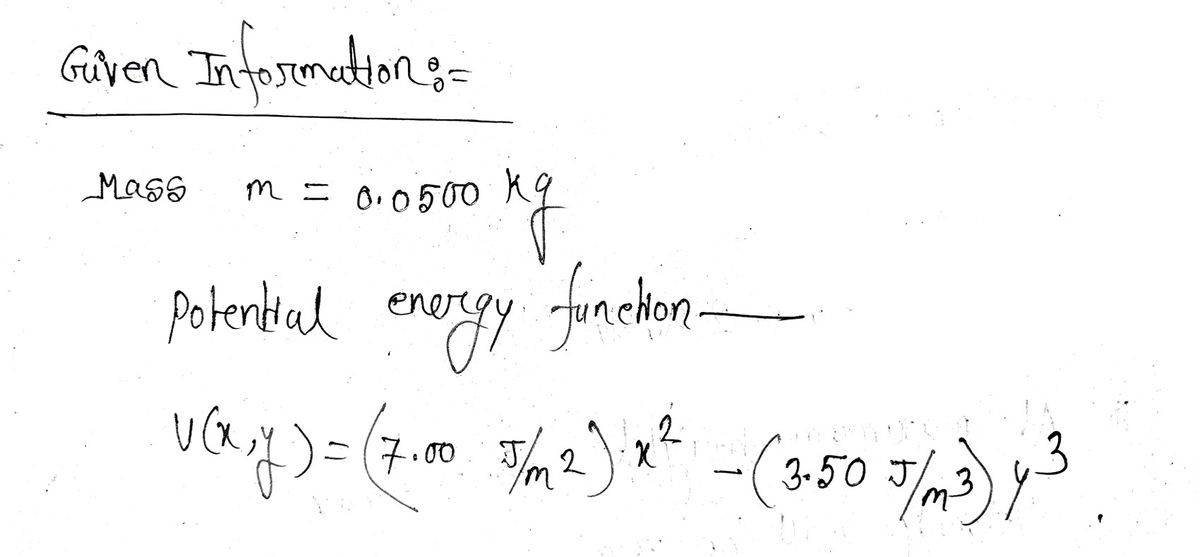 Given Information :=
Mass m = 0.0500 kg
Potential energy function —
U(x,y) = (7.00 J/m2) x² - (3.50 J/m3) y³.